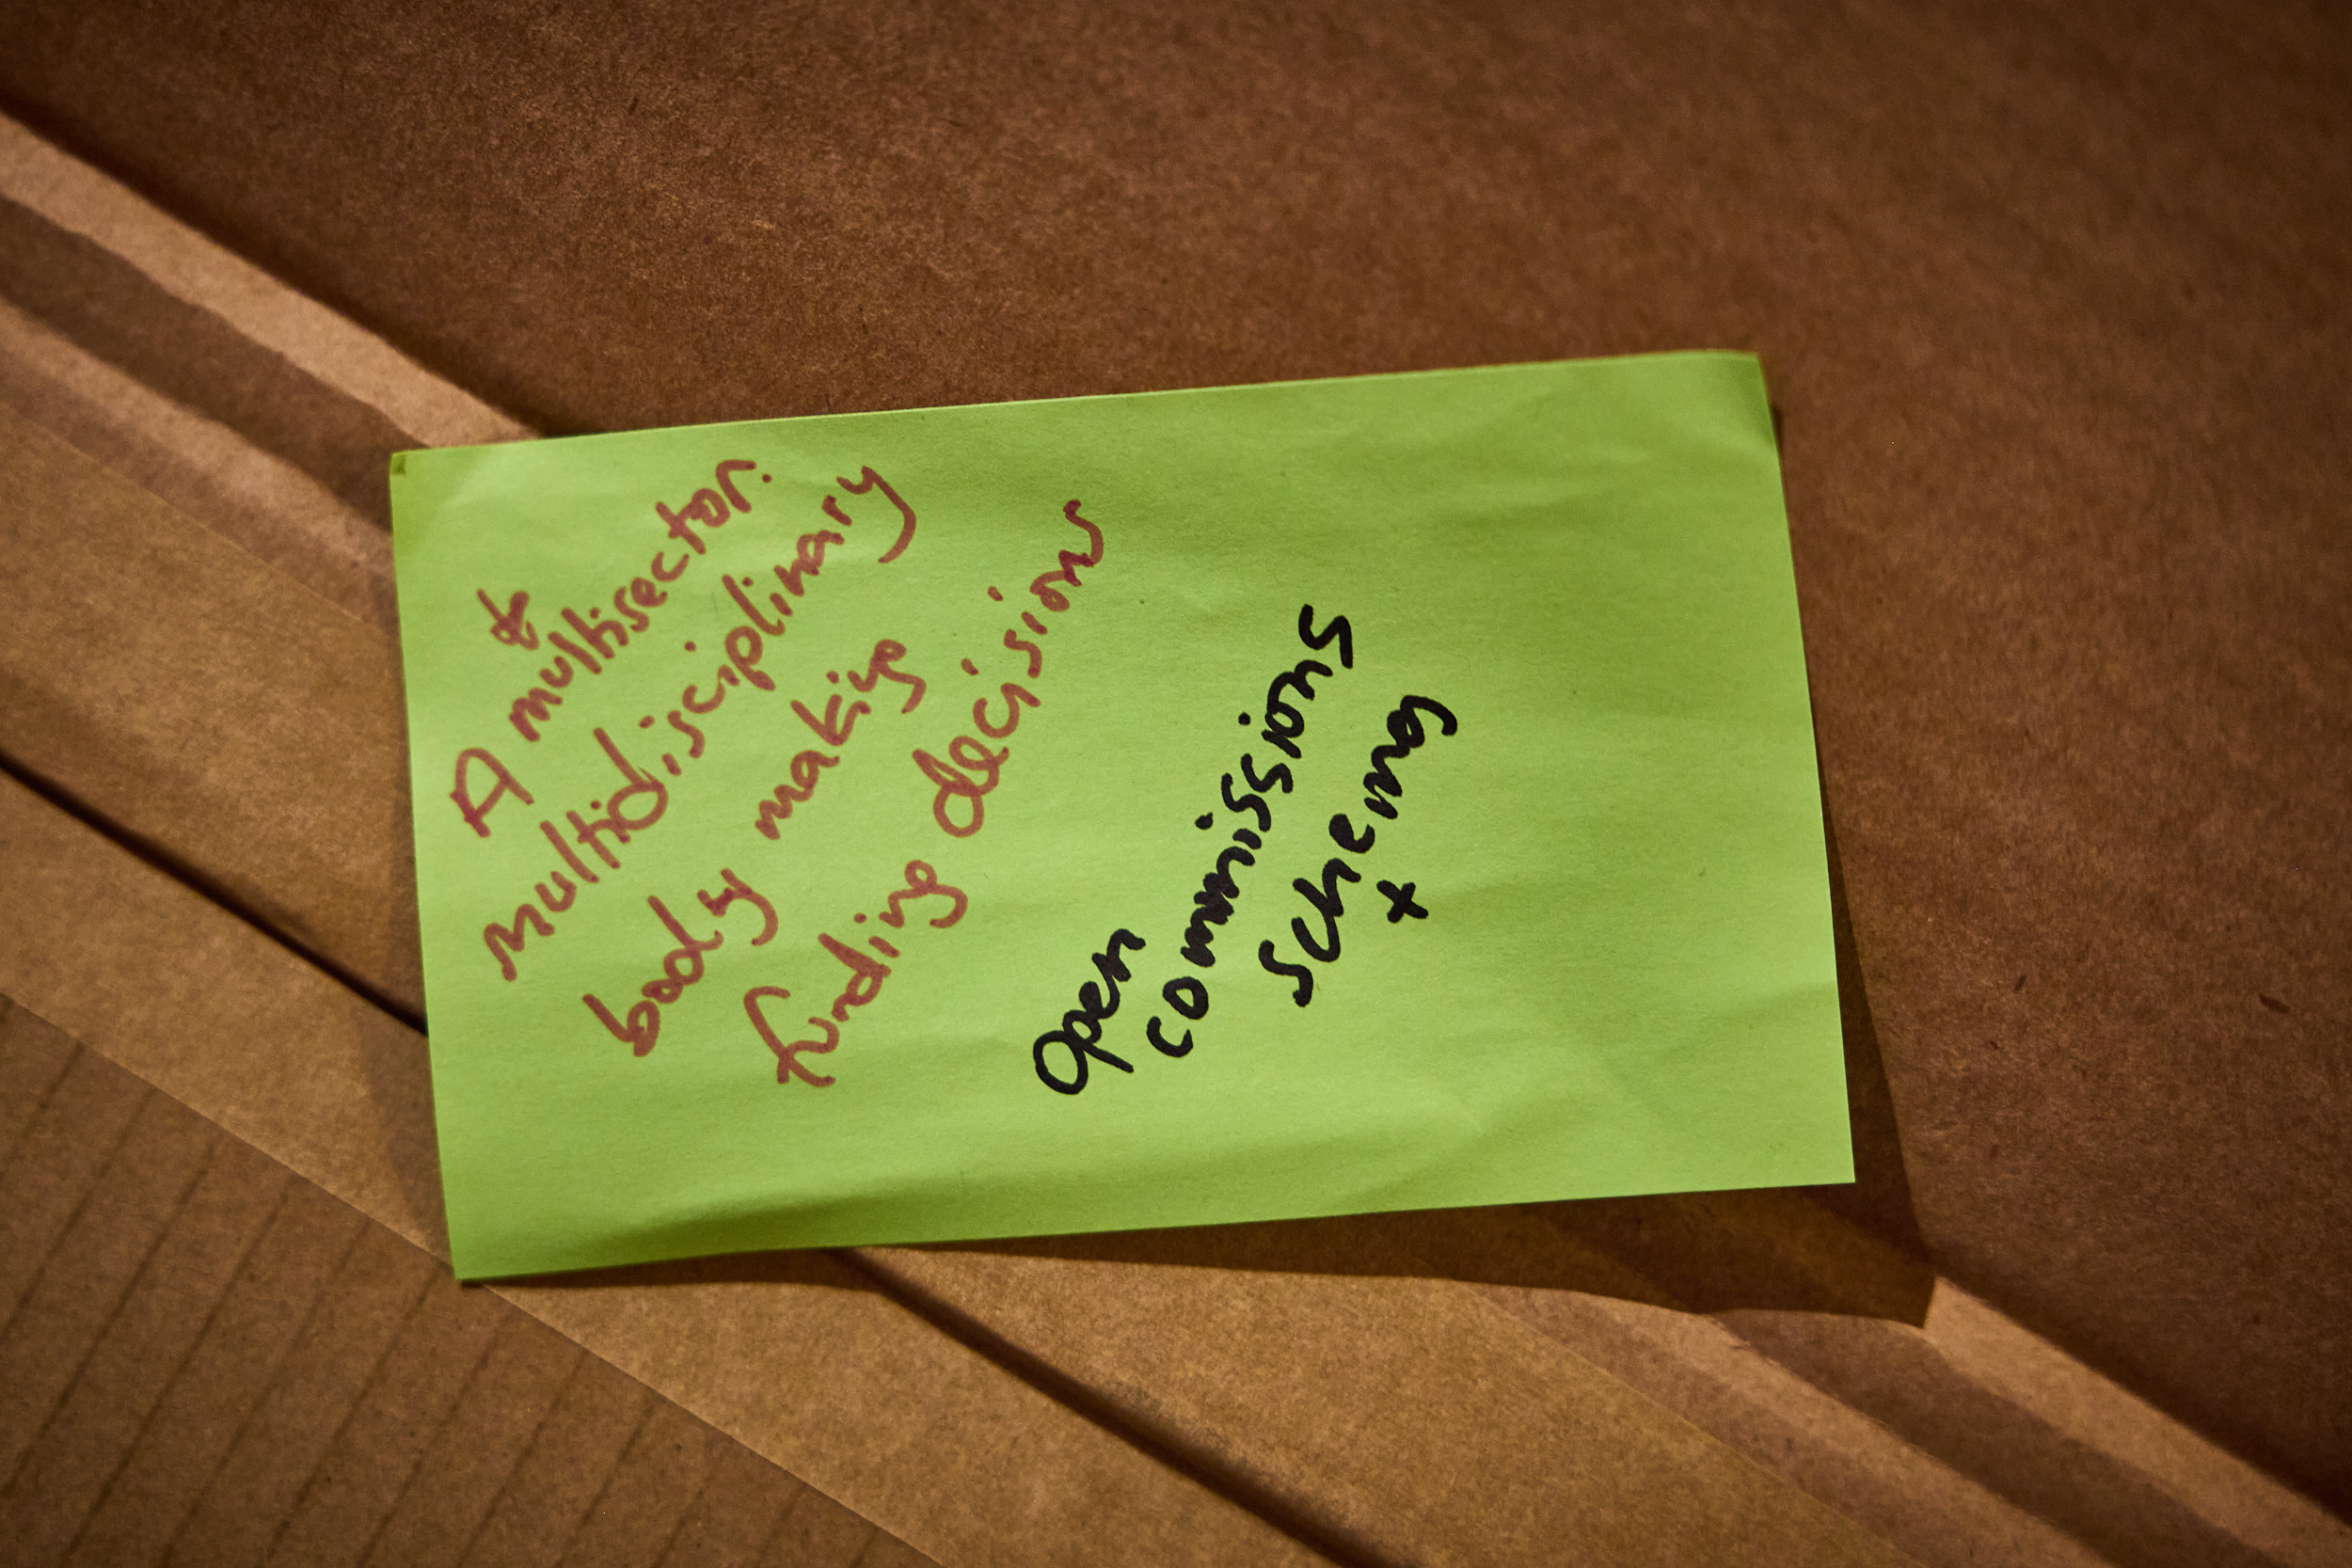 &
A multisector.
multidisciplinary
body making
funding decisions
Open
commissions
schema
+